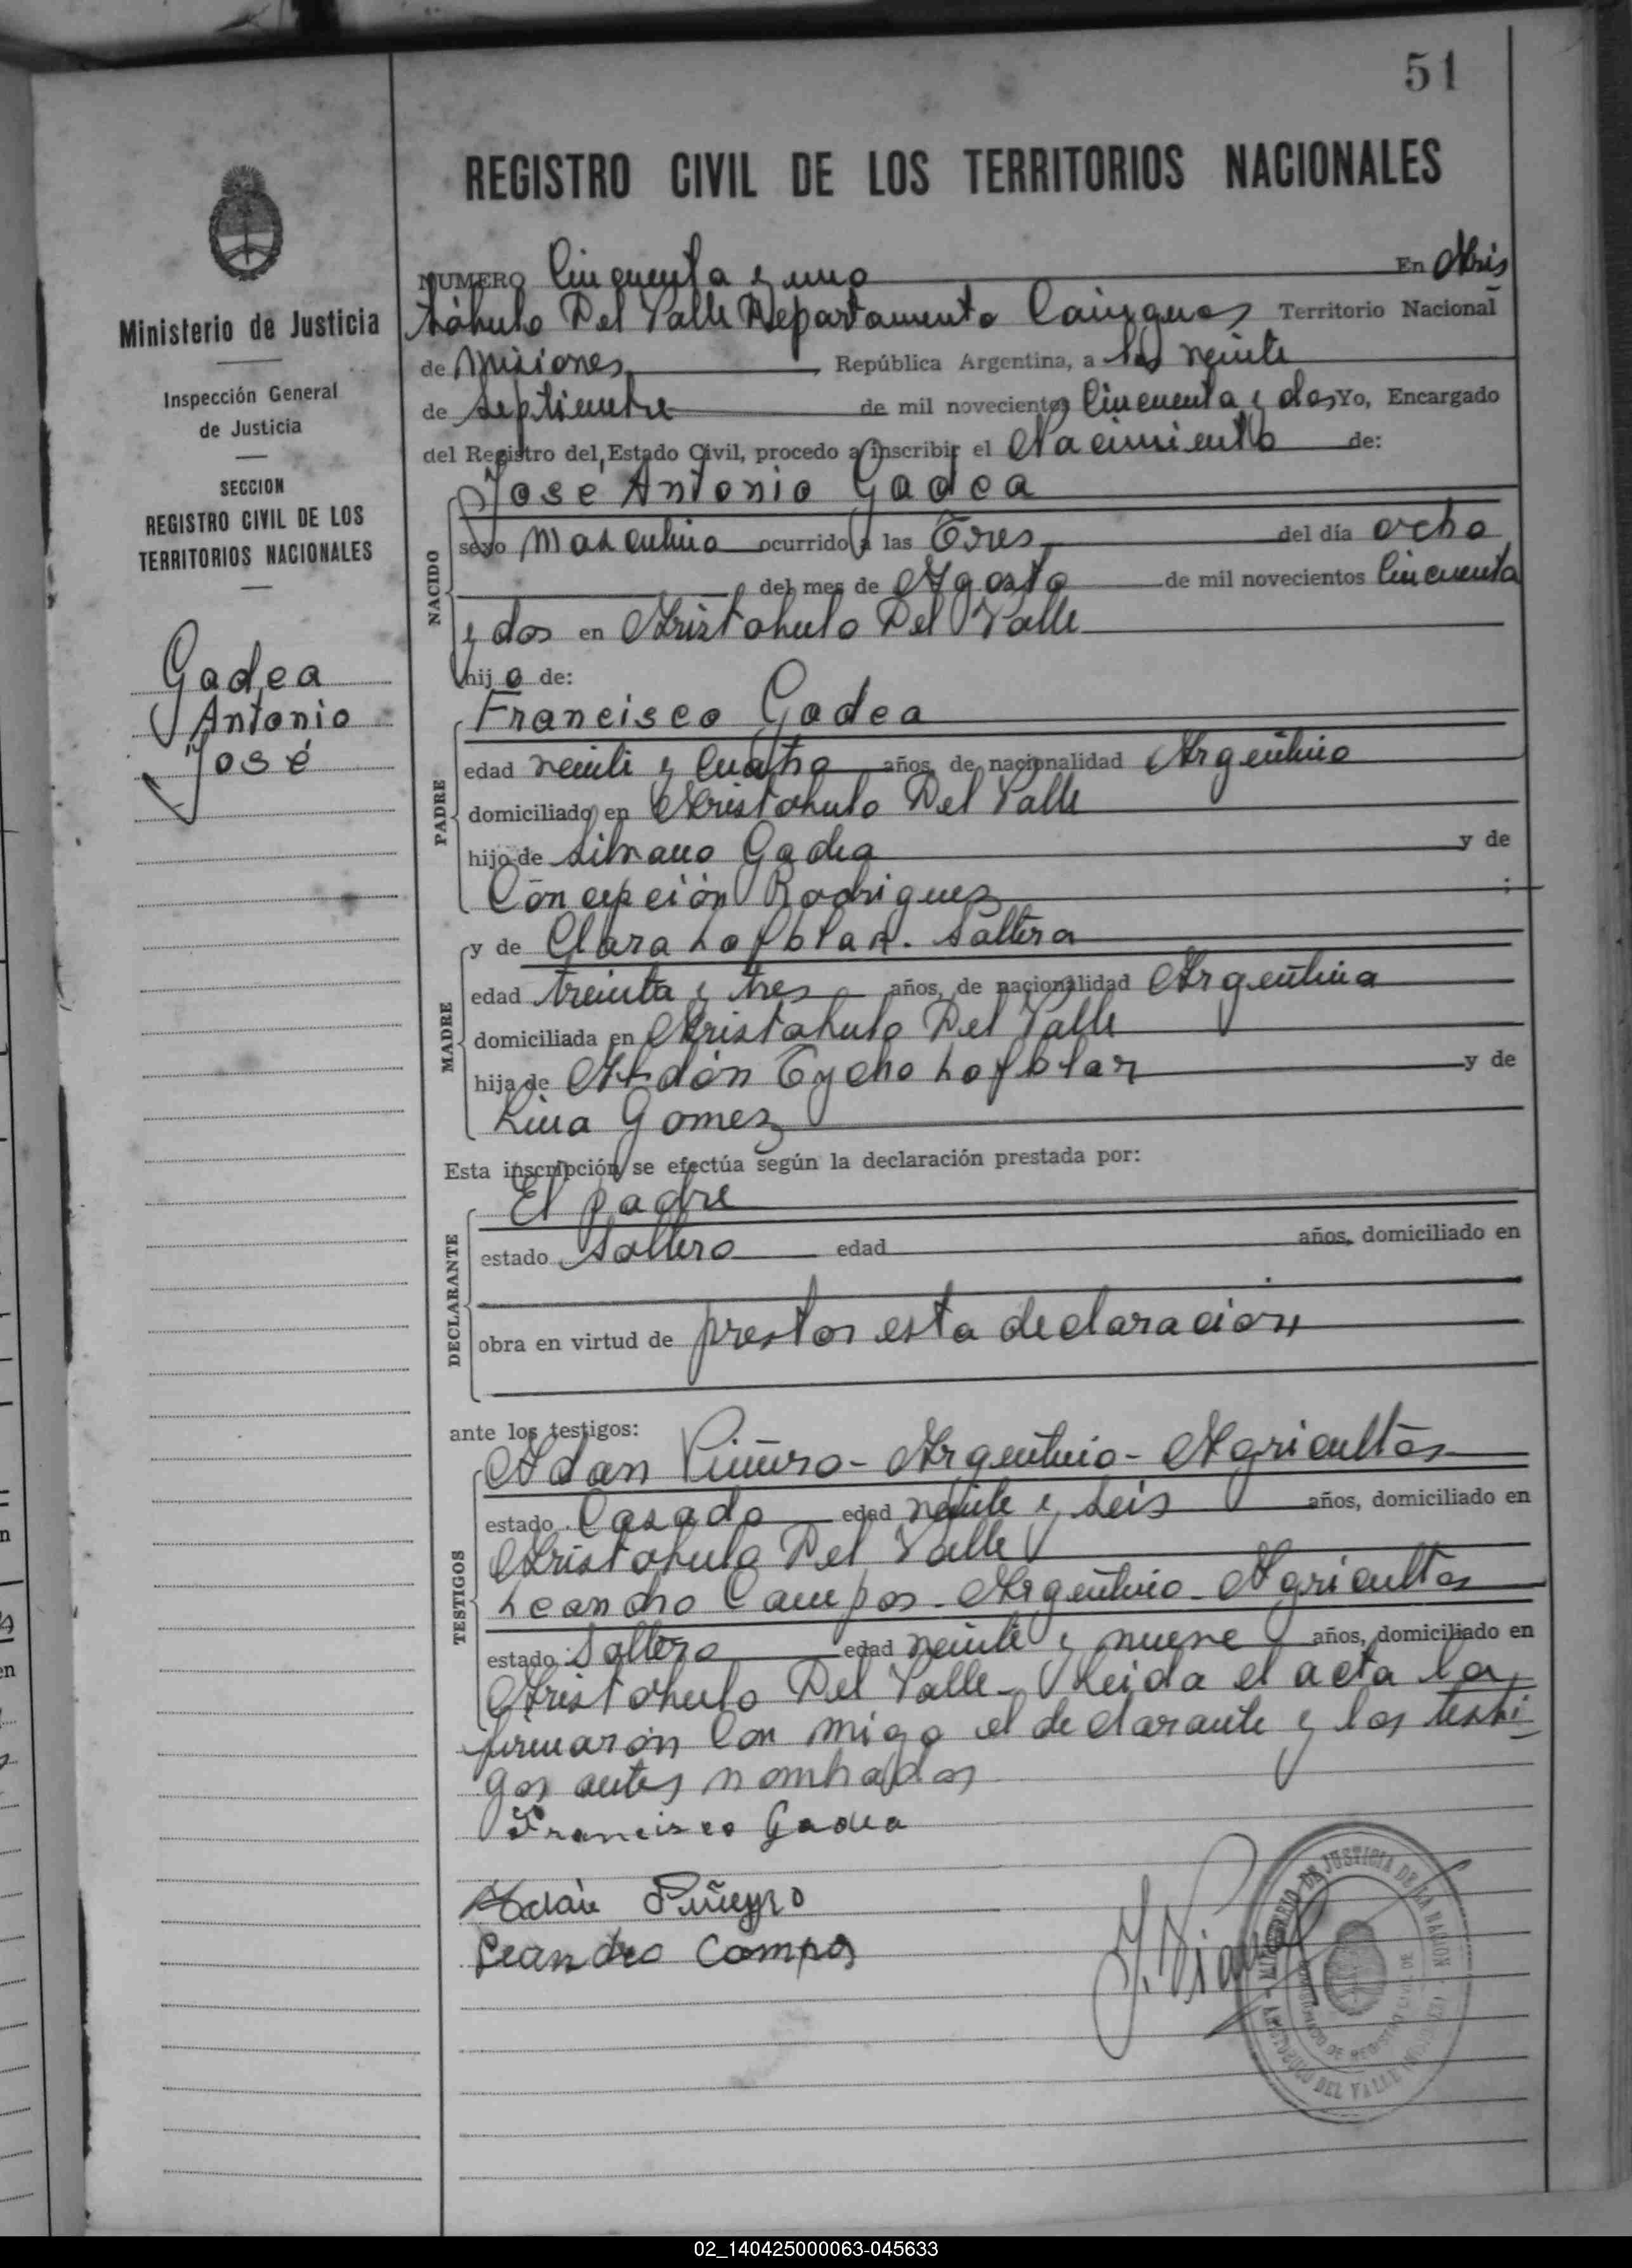 51
REGISTRO CIVIL DE LOS TERRITORIOS NACIONALES
Ministerio de Justicia
Inspección General
de Justicia
SECCION
REGISTRO CIVIL DE LOS
TERRITORIOS NACIONALES
Gadea
Antonio
José
NUMERO Cincuenta y uno En Aris
tóbulo Del Valle Departamento Cainguas Territorio Nacional
de Misiones, República Argentina, a los veinte
de septiembre de mil novecientos Cincuenta y dos Yo, Encargado
del Registro del Estado Civil, procedo a inscribir el Nacimiento de:
NACIDO
Jose Antonio Gadea
sexo Masculino ocurrido a las Tres del día ocho
del mes de Agosto de mil novecientos Cincuenta
y dos en Aristobulo Del Valle
hijo de:
PADRE
Francisco Gadea
edad veinti y cuatro años, de nacionalidad Argentino
domiciliado en Aristobulo Del Valle
hijo de Silvano Gadea y de
Concepción Rodriguez ;
MADRE
y de Clara Lofblar. Soltera
edad treinta y tres años, de nacionalidad Argentina
domiciliada en Aristobulo Del Valle
hija de Abdón Tycho Lofblar y de
Lina Gomez
Esta inscripción se efectúa según la declaración prestada por:
DECLARANTE
El padre
estado Soltero edad años, domiciliado en
obra en virtud de prestar esta declaración
ante los testigos:
TESTIGOS
Adan Piñero - Argentino - Agricultor
estado Casado edad veinte y seis años, domiciliado en
Aristobulo Del Valle
Leandro Campos - Argentino - Agricultor
estado Soltero edad veinte y nueve años, domiciliado en
Aristobulo Del Valle - Leida el acta la
firmarón Con migo el declarante y los testi
gos antes nombrados
Francisco Gadea
Adán Piñeyro
Leandro Campos
MINISTERIO DE JUSTICIA DE LA NACION
ARISTOBULO DEL VALLE
02_140425000063-045633